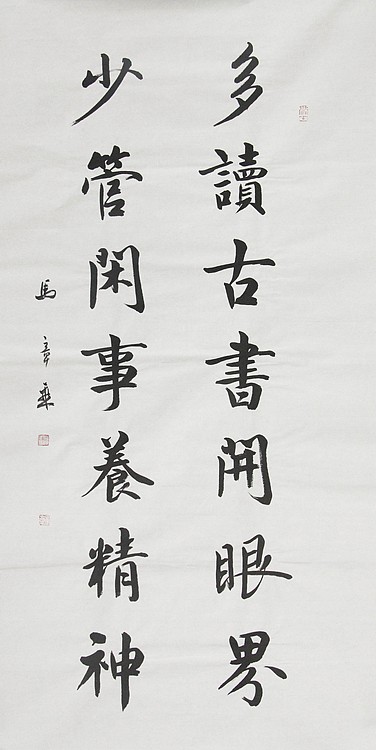 多讀古書開眼界
少管閑事養精神
馬章乘